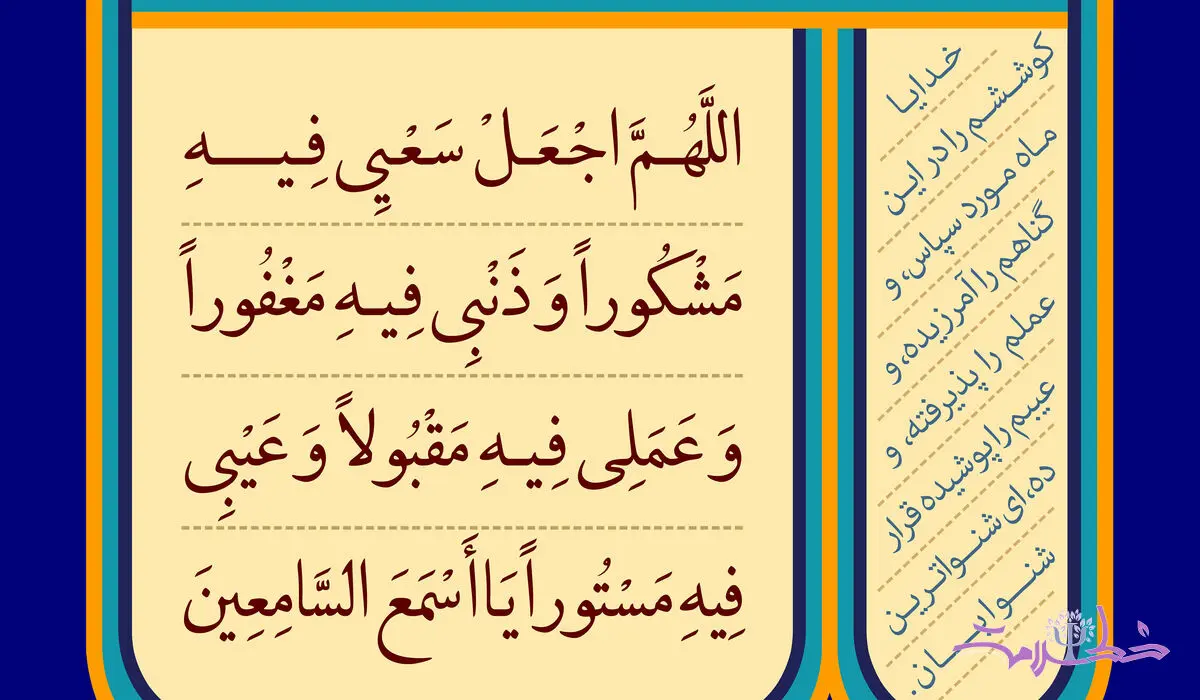 اللَّهُمَّ اجْعَلْ سَعْيِي فِيهِ
مَشْكُوراً وَ ذَنْبِي فِيهِ مَغْفُوراً
وَ عَمَلِی فِیهِ مَقْبُولاً وَ عَيْبِی
فِيهِ مَسْتُوراً يَا أَسْمَعَ السَّامِعِينَ
خدایا
کوششم را در این
ماه مورد سپاس، و
گناهم را آمرزیده، و
عملم را پذیرفته، و
عیبم را پوشیده قرار
ده، ای شنواترین
شنوایان.
خط سلامت